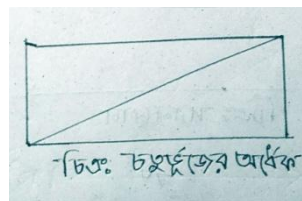 চিত্রঃ চতুর্ভুজের অর্ধেক